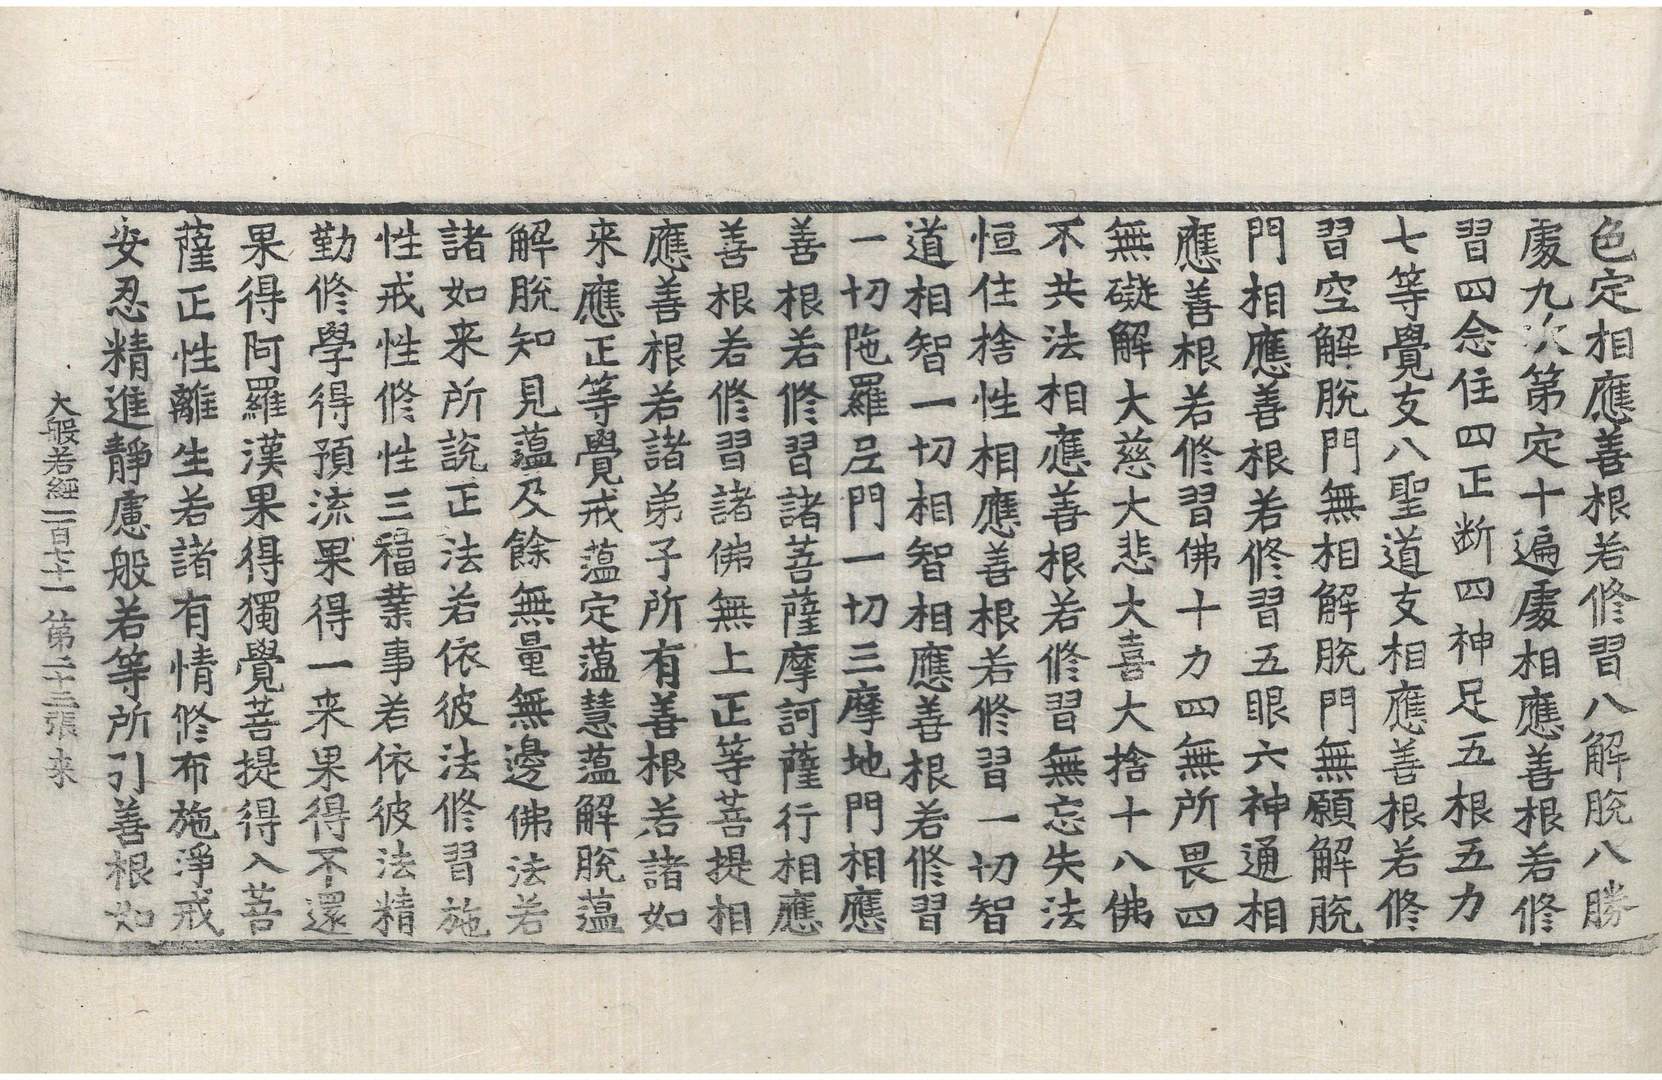 色定相應善根若修習八解脫八勝
處九次第定十遍處相應善根若修
習四念住四正断四神足五根五力
七等覺支八聖道支相應善根若修
習空解脫門無相解脫門無願解脫
門相應善根若修習五眼六神通相
應善根若修習佛十力四無所畏四
無礙解大慈大悲大喜大捨十八佛
不共法相應善根若修習無忘失法
恒住捨性相應善根若修習一切智
道相智一切相智相應善根若修習
一切陁羅尼門一切三摩地門相應
善根若修習諸菩薩摩訶薩行相應
善根若修習諸佛無上正等菩提相
應善根若諸弟子所有善根若諸如
来應正等覺戒蘊定蘊慧蘊解脫蘊
解脫知見蘊及餘無量無邊佛法若
諸如来所說正法若依彼法修習施
性戒性修性三福業事若依彼法精
勤修學得預流果得一来果得不還
果得阿羅漢果得獨覺菩提得入菩
薩正性離生若諸有情修布施淨戒
安忍精進靜慮般若等所引善根如
大般若經一百七十一 第二十三張 来